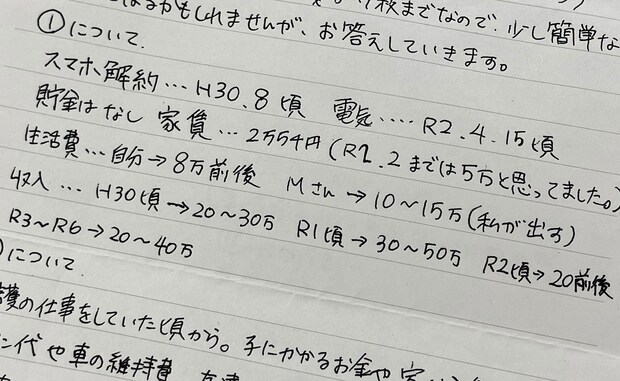 なるかもしれませんが、お答えしていきます。 枚までなので、少し簡単な
①について.
スマホ解約…H30.8頃 電気‥‥R2.4.15頃
貯金はなし 家賃…2万554円(R2.2までは5万と思ってました。)
生活費…自分→8万前後 Mさん→10〜15万(私が出す)
収入…H30頃→20〜30万 R1頃→30〜50万 R2頃→20前後
R3〜R6→20〜40万
について
護の仕事をしていた頃から。子にかかるお金や家
代や車の維持費